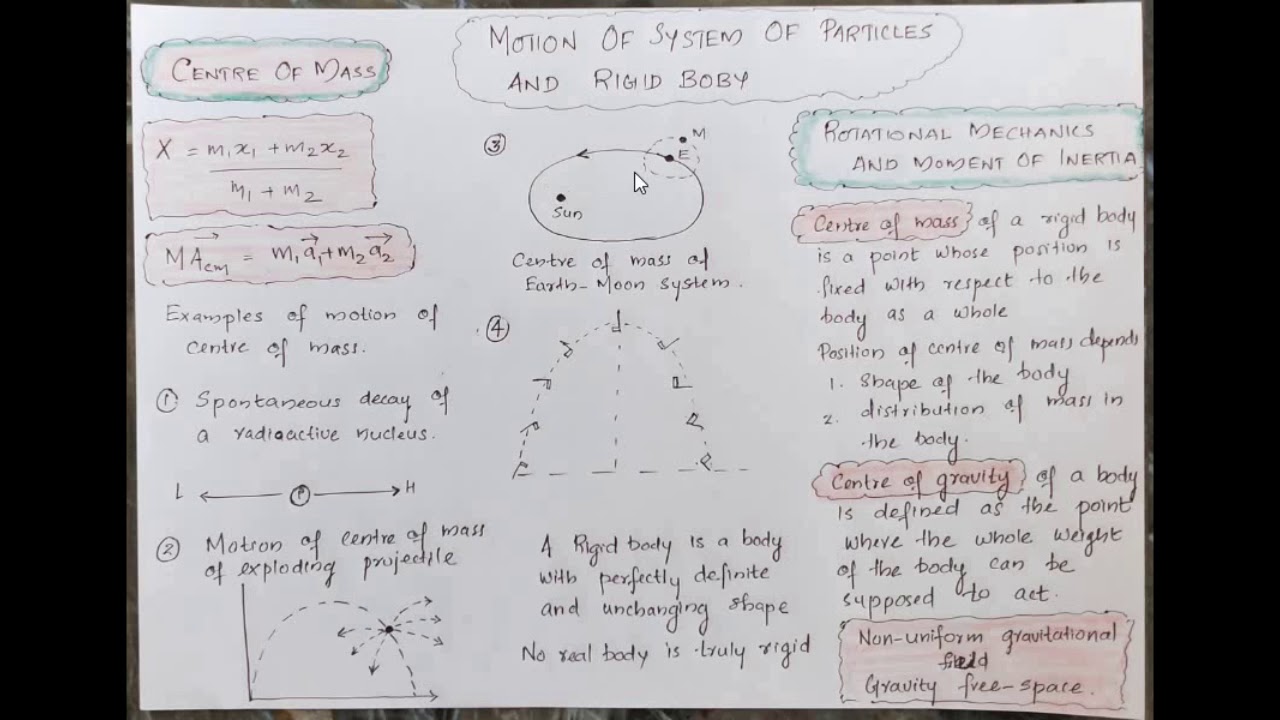 MOTION OF SYSTEM OF PARTICLES
AND RIGID BOBY
CENTRE OF MASS
X = m₁x₁ + m₂x₂
m₁ + m₂
MA⃗cm = m₁a⃗₁ + m₂a⃗₂
Examples of motion of
centre of mass.
① Spontaneous decay of
a radioactive nucleus.
L P H
② Motion of centre of mass
of exploding projectile
③
M
E
Sun
Centre of mass of
Earth-Moon system.
④
A Rigid body is a body
with perfectly definite
and unchanging shape
No real body is truly rigid
ROTATIONAL MECHANICS
AND MOMENT OF INERTIA
Centre of mass of a rigid body
is a point whose position is
fixed with respect to the
body as a whole
Position of centre of mass depends
1. Shape of the body
2. distribution of mass in
the body.
Centre of gravity of a body
is defined as the point
where the whole weight
of the body can be
supposed to act.
Non-uniform gravitational
field
Gravity free-space.